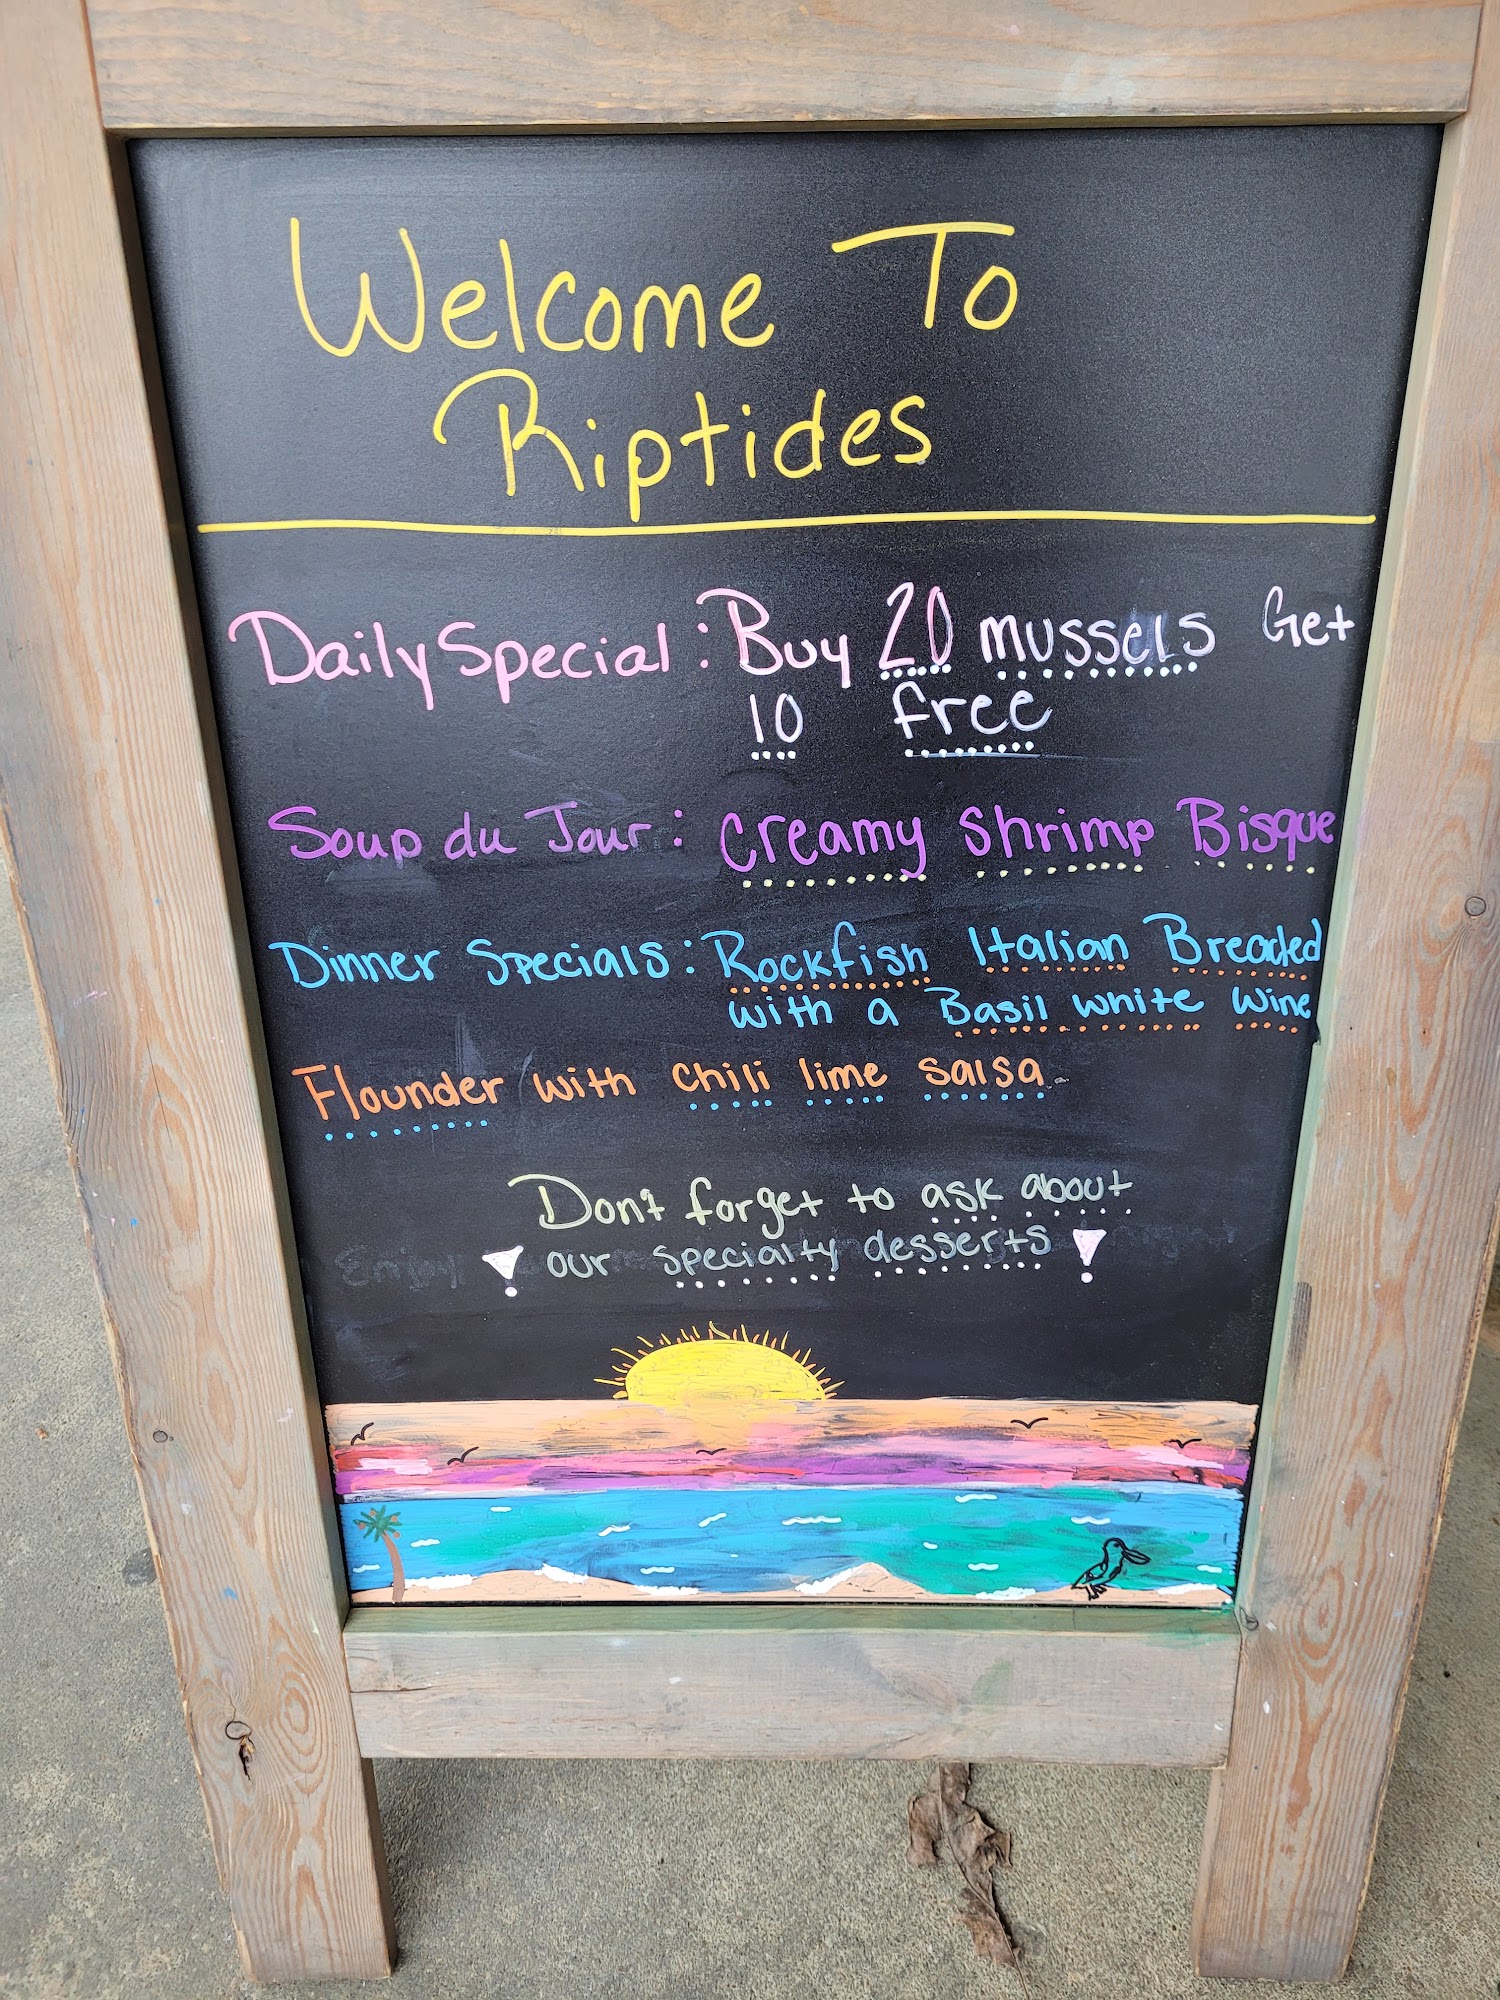 Welcome To
Riptides
Daily Special: Buy 20 mussels Get
10 free
Soup du Jour: Creamy Shrimp Bisque
Dinner Specials: Rockfish Italian Breaded
with a Basil white wine
Flounder with chili lime salsa
Don't forget to ask about
! our specialty desserts !
Enjoy